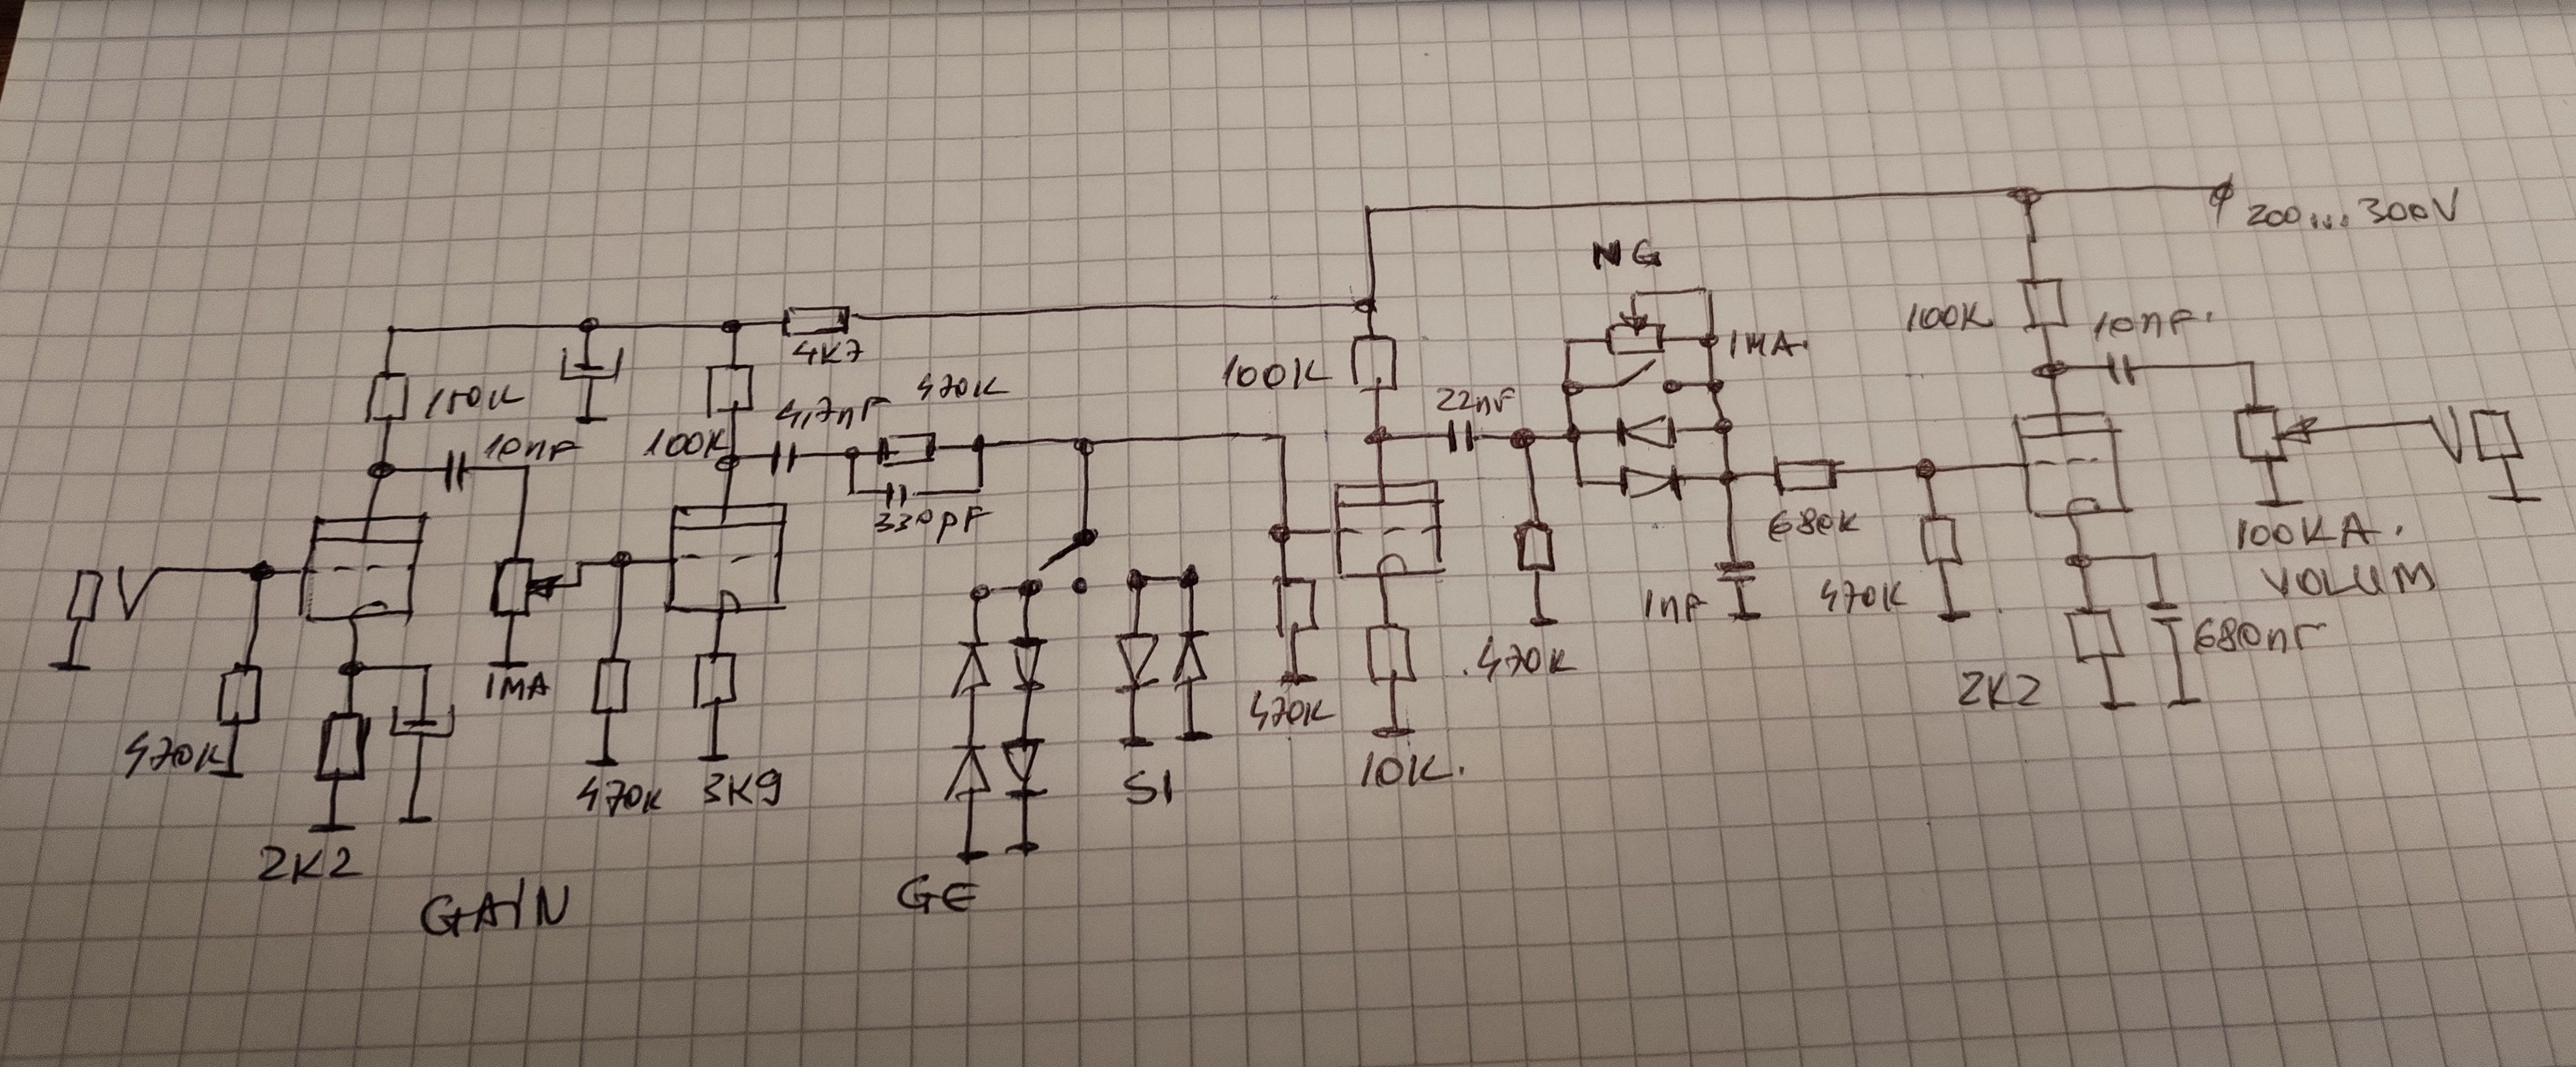 200... 300V
NG
100K
10nF.
1MA.
4K7
470K
100K
22nF
4,7nF
150K
10nF
100K
330pF
680K
100KA.
VOLUM
1nF
470K
680nF
1MA
470K
2K2
470K
470K
470K
3K9
SI
10K.
2K2
GAIN
GE